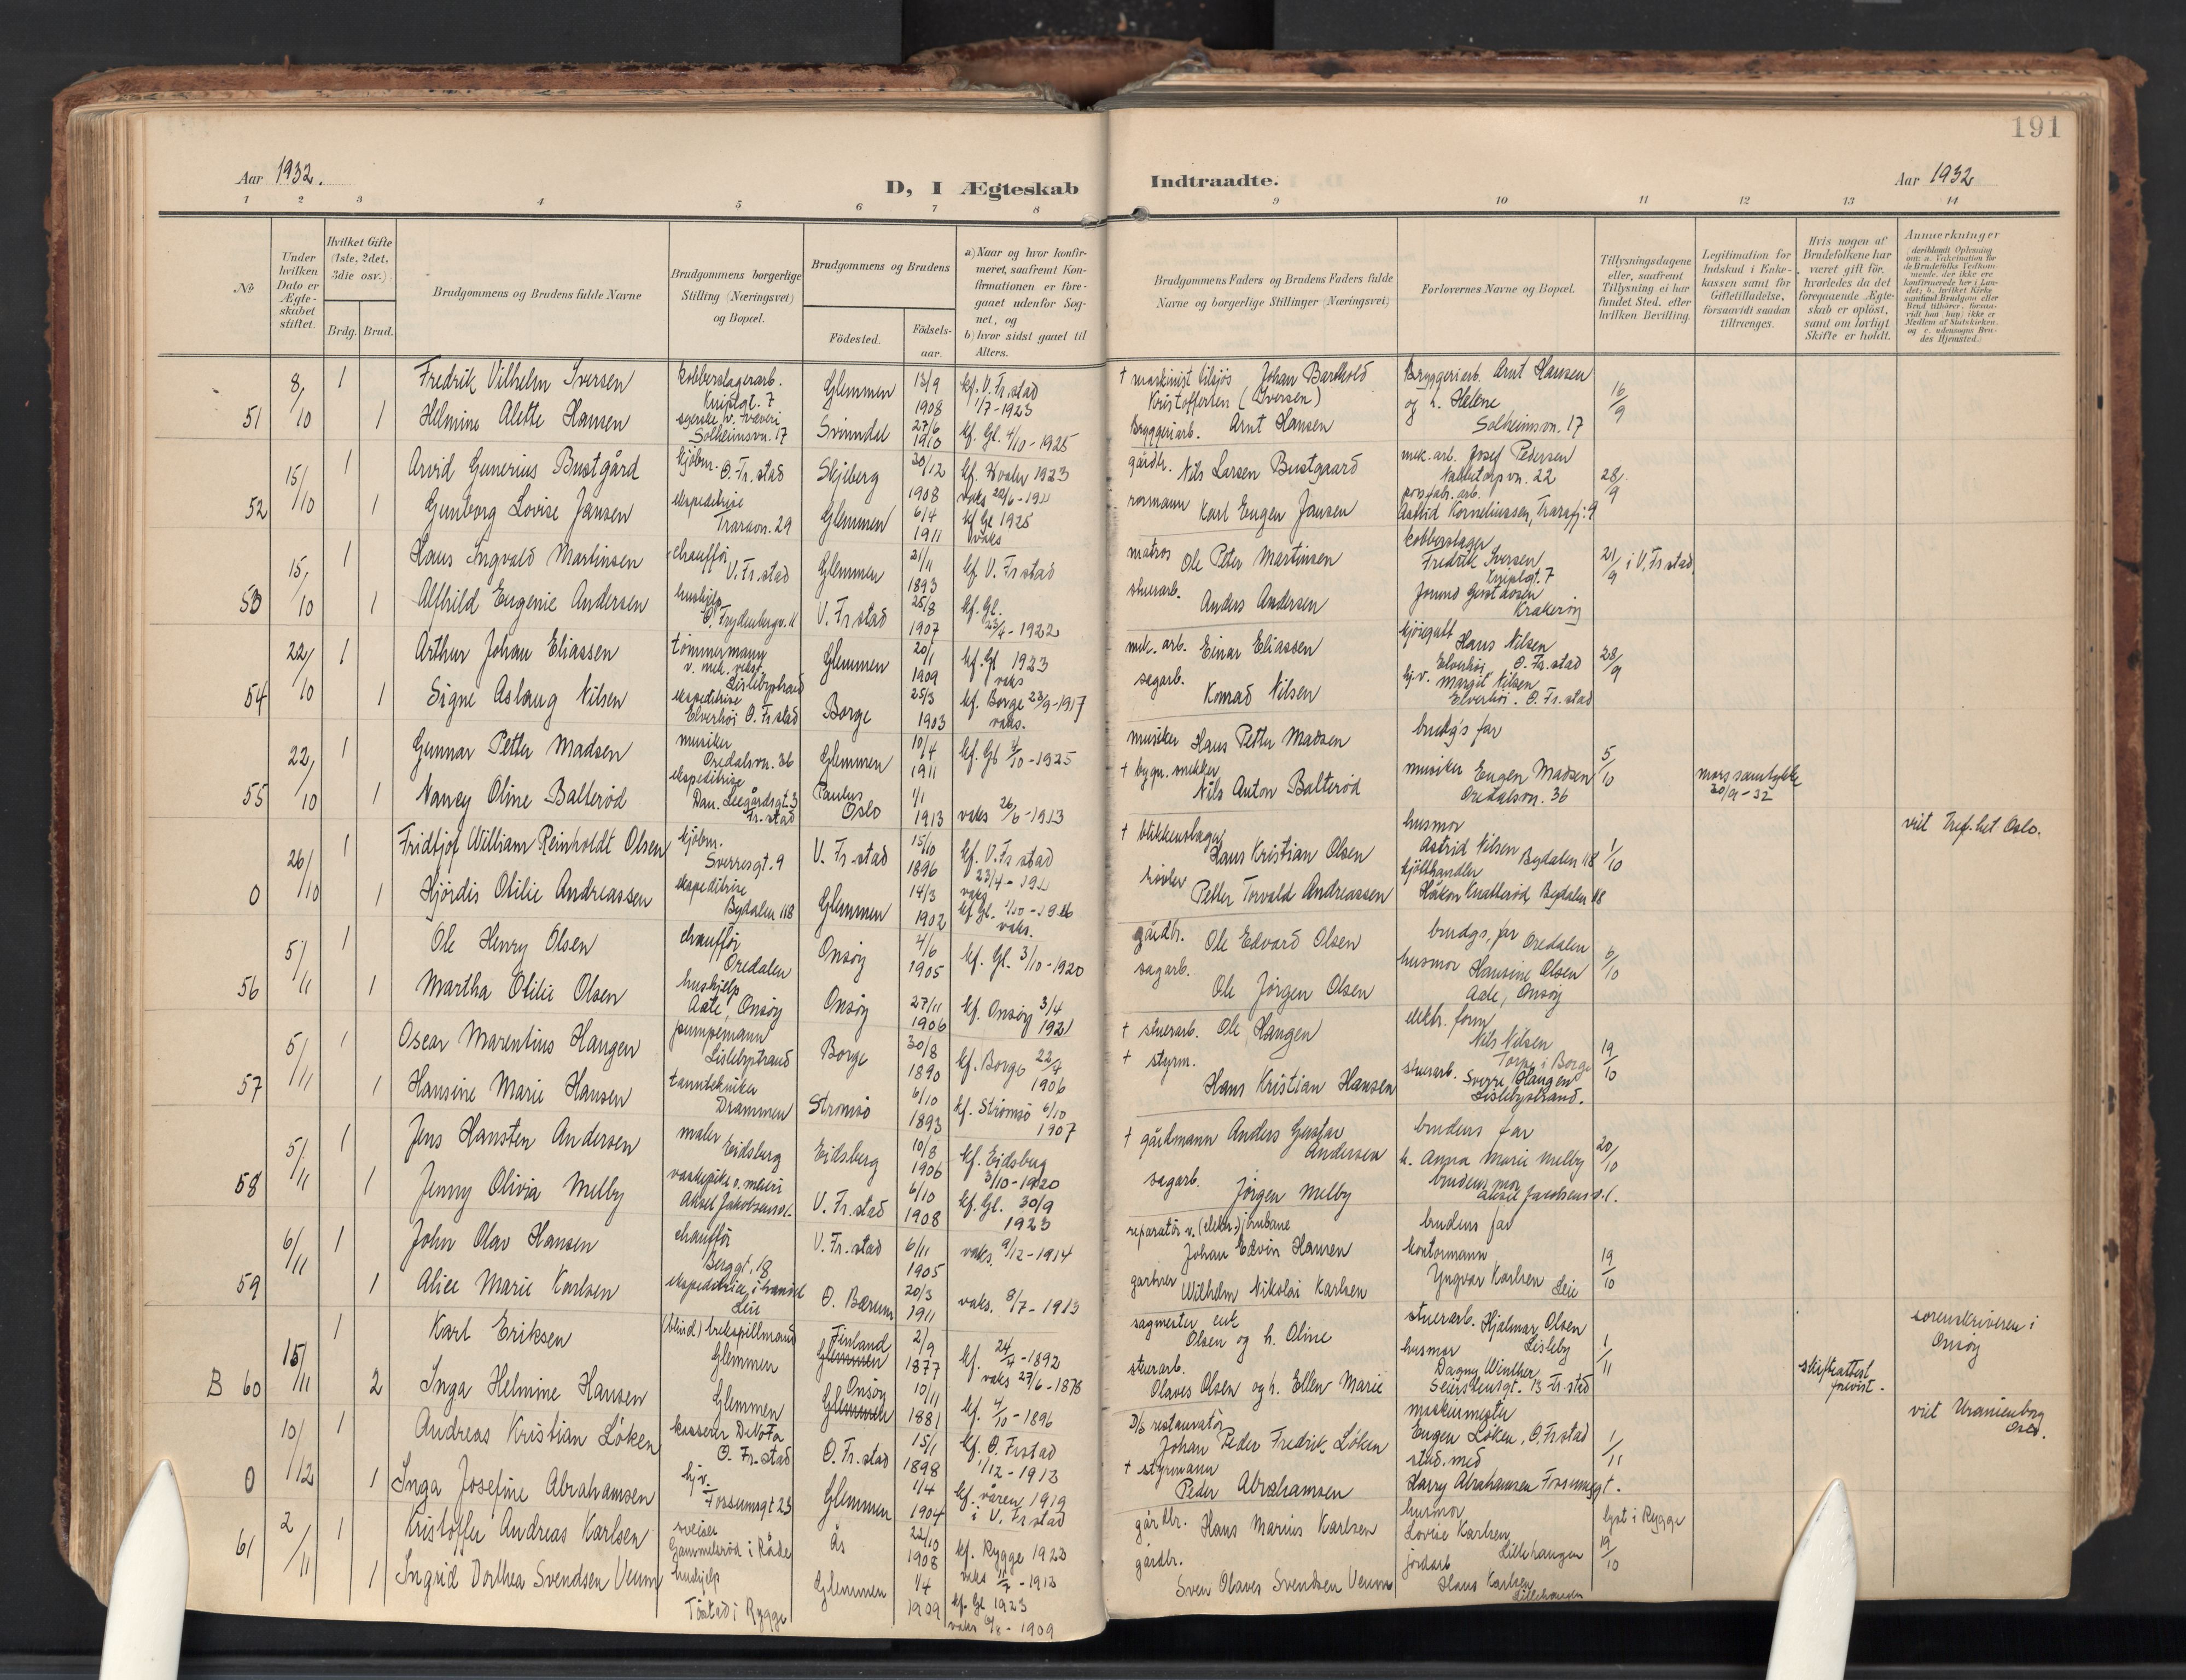 191
Aar 1932.
D, I Ægteskab
Indtraadte.
Aar 1932
1 2 3 4 5 6 7 8 9 10 11 12 13 14
No
Under hvilken Dato er Ægte-skabet stiftet.
Hvilket Gifte (1ste, 2det, 3die osv.).
Brdg. Brud.
Brudgommens og Brudens fulde Navne
Brudgommens borgerlige Stilling (Næringsvei) og Bopæl.
Brudgommens og Brudens
Fødested.
Fødsels-aar.
a) Naar og hvor konfir-meret, saafremt Kon-firmationen er fore-gaaet udenfor Sog-net, og
b) hvor sidst gaaet til Alters.
Brudgommens Faders og Brudens Faders fulde Navne og borgerlige Stillinger (Næringsvei)
Forlovernes Navne og Bopæl.
Tillysningsdagene eller, saafremt Tillysning ei har fundet Sted, efter hvilken Bevilling.
Legitimation for Indskud i Enke-kassen samt for Giftetilladelse, forsaavidt saadan tiltrænges.
Hvis nogen af Brudefolkene har været gift før, hvorledes da det foregaaende Ægte-skab er opløst, samt om lovligt Skifte er holdt.
Anmerkninger
51 8/10 1 Fredrik Vilhelm Iversen kobberslagerarb. Glemmen 13/9 1908 kf. V. Fr.stad 1/7-1923
† maskinist tilsjøs Johan Barthold Kristoffersen (Iversen) Bryggeriarb. Arnt Hansen og h. Helene Solheimsvn. 17 16/9
1 Helmine Alette Hansen Solheimsvn. 17 Svinndal 27/6 1910 kf. Gl. 4/10-1925
Bryggeriarb. Arnt Hansen
52 15/10 1 Arvid Gunerius Bustgård kjøbm. Ø. Fr.stad Skjeberg 30/12 1908 kf. Hvaler 1923
gårdbr. Nils Larsen Bustgaard mek. arb. Josef Pedersen 28/9
1 Gunborg Lovise Jansen ekspeditrise Traravn. 29 Glemmen 6/4 1911 kf Gl 1925 vaks
rormann Karl Eugen Jansen Astrid Korneliussen,
53 15/10 1 Hans Ingvald Martinsen chauffør V. Fr.stad Glemmen 21/11 1893 kf V. Fr stad
matros Ole Peter Martinsen kobberslager Fredrik Iversen 21/9 i V. Fr.stad
1 Alfhild Eugenie Andersen hushjelp V. Fr stad 25/8 1907 kf. Gl. 23/4-1922
stuerarb. Anders Andersen Krakerøy
54 22/10 1 Arthur Johan Eliassen tømmermann v. mek. verkst. Lislebystrand Glemmen 20/1 1909 kf. Gl 1923 vaks
mek. arb. Einar Eliassen Hans Nilsen Elverhøi Ø. Fr. stad 28/9
1 Signe Aslaug Nilsen ekspeditrise Elverhøi Ø. Fr stad Borge 25/3 1903 kf. Borge 23/9-1917 vaks.
sagarb. Konrad Nilsen Margit Nilsen Elverhøi. Ø. Fr. stad
55 22/10 1 Gunnar Petter Madsen musiker Oredalsvn. 36 Glemmen 10/4 1911 kf. Gl 4/10-1925
musiker Hans Petter Madsen brudg's far 5/10
1 Nancy Oline Balterød ekspeditrise Dan. Leegårdsgt. 3 Fr. stad Paulus Oslo 1/1 1913 vaks 26/6-1913
† bygn. snekker Nils Anton Balterød musiker Eugen Madsen Oredalsvn. 36 mors samtykke 30/9-32
0 26/10 1 Fridtjof William Reinholdt Olsen kjøbm. Sverresgt. 9 V. Fr stad 15/10 1896 kf. V. Fr stad
† blikkenslager Hans Kristian Olsen husmor Astrid Nilsen Bydalen 118 1/10 viet Tref. het Oslo.
1 Hjørdis Otilie Andreassen ekspeditrise Bydalen 118 Glemmen 14/3 1902 vaks.
høvler Petter Torvald Andreassen Håkon Knatterød Bydalen 118
56 5/11 1 Ole Henry Olsen chauffør Oredalen Onsøy 4/6 1905 kf. Gl. 3/10-1920
gårdbr. Ole Edvard Olsen brudgs. far Oredalen 6/10
1 Martha Otilie Olsen hushjelp Aale, Onsøy Onsøy 27/11 1906 kf. Onsøy 3/4 1921
sagarb. Ole Jørgen Olsen husmor Hansine Olsen Aale, Onsøy
57 5/11 1 Oscar Marentius Haugen pumpemann Lislebystrand Borge 30/8 1890 kf. Borge 22/4 1906
† stuerarb. Ole Haugen elektr. form. Nils Nilsen Torp i Borge 19/10
1 Hansine Marie Hansen tanntekniker Drammen Strømsø 6/10 1893 kf. Strømsø 6/10 1907
† styrm. Hans Kristian Hansen stuerarb. Sverre Haugen Lislebystrand.
58 5/11 1 Jens Hansten Andersen maler Eidsberg Eidsberg 10/8 1906 kf. Eidsberg 3/10-1920
† gårdmann Anders Gustav Andersen brudens far 20/10
1 Jenny Olivia Melby V. Fr. stad 6/10 1908 kf. Gl. 30/9 1923
sagarb. Jørgen Melby h. Anna Marie Melby brudens mor
59 6/11 1 John Olav Hansen chauffør Berggt. 18 V. Fr. stad 6/11 1905 vaks. 9/12-1914
reparatør v. (elektr.) jernbane Johan Edvin Hansen brudens far 19/10
1 Alice Marie Karlsen Leie Ø. Bærum 20/3 1911 vaks. 8/7-1913
gartner Wilhelm Nikolai Karlsen kontormann Yngvar Karlsen Leie
B 60 15/11 1 Karl Eriksen (blind) trekspillmann Glemmen Finland Glemmen 2/9 1877 kf. 24/4-1892 vaks 27/6-1878
sagmester Olsen og h. Oline stuerarb. Hjalmar Olsen Lisleby 1/11 sorenskriveren i Onsøy
2 Inga Helmine Hansen Glemmen Onsøy Glemmen 10/11 1881 kf. 4/10-1896
stuerarb. Olaves Olsen og h. Ellen Marie husmor Dagny Winther Seierstensgt. 13 Fr. stad skifteattest forevist.
0 10/12 1 Andreas Kristian Løken kasserer Ø. Fr. stad Ø. Fr. stad 15/1 1898 kf. Ø. Frstad 1/12-1913
D/s restauratør Johan Peder Fredrik Løken maskinmester Eugen Løken, Ø. Fr stad 1/11 viet Uranienborg Oslo.
1 Inga Josefine Abrahamsen hj. v. Fossumsgt 23 Glemmen 1/4 1904 kf. våren 1919 i V. Fr stad
† styrmann Peder Abrahamsen stud. med Harry Abrahamsen Fossumsgt.
61 2/11 1 Kristoffer Andreas Karlsen sveiser Gammelsrød i Råde Ås 22/10 1908 kf. Rygge 1923
gårdbr. Hans Marius Karlsen husmor Lovise Karlsen Lillehaugen lyst i Rygge 19/10
1 Ingrid Dorthea Svendsen Veum hushjelp Tostad i Rygge Glemmen 1/4 1909 kf. Gl 1923
gårdbr. Sven Olaves Svendsen Veum jordarb Hans Karlsen Lillehaugen